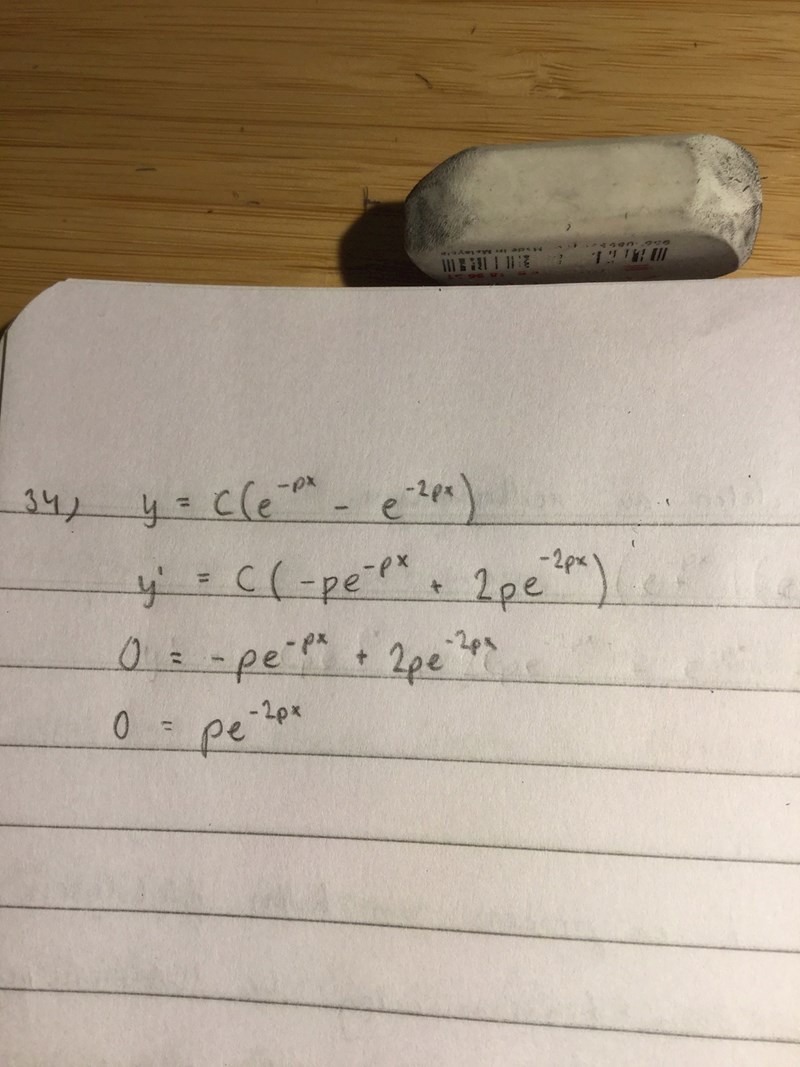 Made in Malaysia
34) y = C(e^{-px} - e^{-2px})
y' = C(-pe^{-px} + 2pe^{-2px})
0 = -pe^{-px} + 2pe^{-2px}
0 = pe^{-2px}